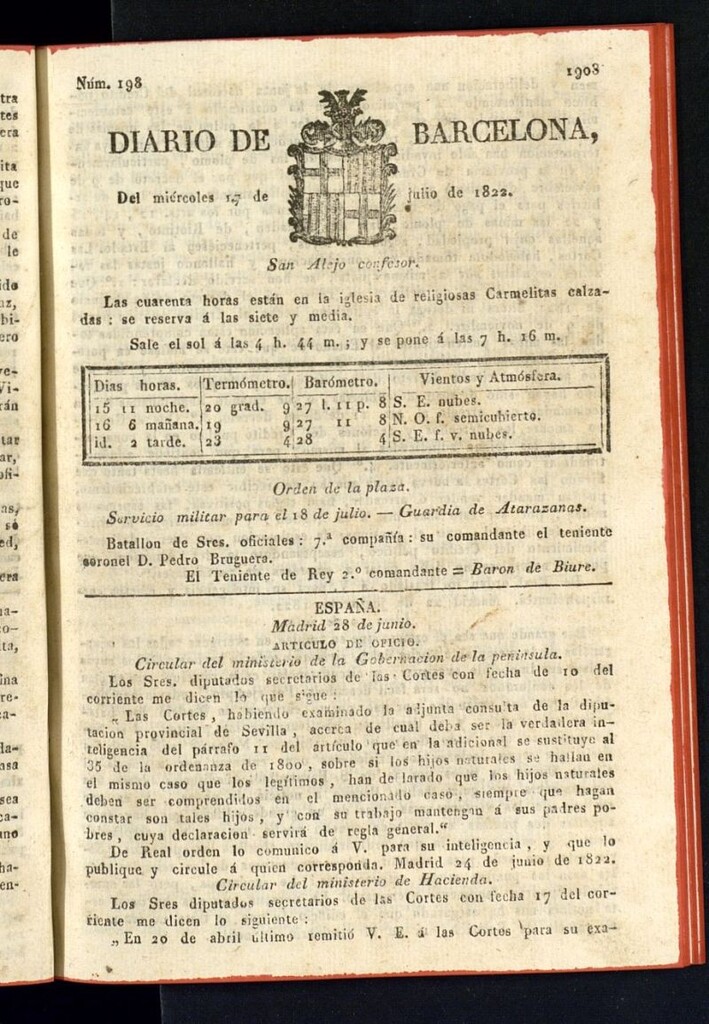 Núm. 198
1908
DIARIO DE BARCELONA,
Del miércoles 17 de julio de 1822.
San Alejo confesor.
Las cuarenta horas están en la iglesia de religiosas Carmelitas calza-
das : se reserva á las siete y media.
Sale el sol á las 4 h. 44 m. ; y se pone á las 7 h. 16 m.
Dias horas. Termómetro. Barómetro. Vientos y Atmósfera.
15 11 noche. 20 grad. 9 27 l. 11 p. 8 S. E. nubes.
16 6 mañana. 19 9 27 11 8 N. O. f. semicubierto.
id. 2 tarde. 23 4 28 4 S. E. f. v. nubes.
Orden de la plaza.
Servicio militar para el 18 de julio. — Guardia de Atarazanas.
Batallon de Sres. oficiales : 7.ª compañía : su comandante el teniente
coronel D. Pedro Bruguera.
El Teniente de Rey 2.º comandante = Baron de Biure.
ESPAÑA.
Madrid 28 de junio.
ARTICULO DE OFICIO.
Circular del ministerio de la Gobernacion de la península.
Los Sres. diputados secretarios de las Cortes con fecha de 10 del
corriente me dicen lo que sigue :
„ Las Cortes , habiendo examinado la adjunta consulta de la dipu-
tacion provincial de Sevilla , acerca de cual deba ser la verdadera in-
teligencia del párrafo 11 del artículo que en la adicional se sustituye al
35 de la ordenanza de 1800 , sobre si los hijos naturales se hallan en
el mismo caso que los legítimos , han de larado que los hijos naturales
deben ser comprendidos en el mencionado caso , siempre que hagan
constar son tales hijos , y con su trabajo mantengan á sus padres po-
bres , cuya declaracion servirá de regla general.“
De Real orden lo comunico á V. para su inteligencia , y que lo
publique y circule á quien corresponda. Madrid 24 de junio de 1822.
Circular del ministerio de Hacienda.
Los Sres diputados secretarios de las Cortes con fecha 17 del cor-
riente me dicen lo siguiente :
„ En 20 de abril último remitió V. E. á las Cortes para su exa-